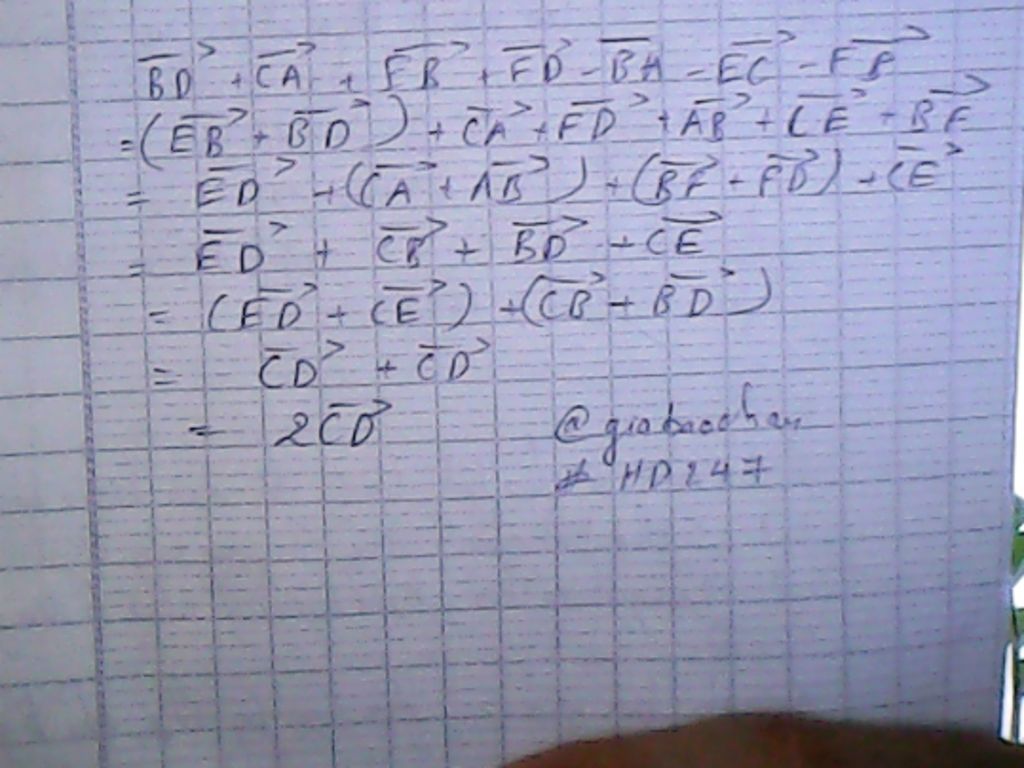 $\overrightarrow{BD} + \overrightarrow{CA} + \overrightarrow{EB} + \overrightarrow{FD} - \overrightarrow{BA} - \overrightarrow{EC} - \overrightarrow{FB}$
$= (\overrightarrow{EB} + \overrightarrow{BD}) + \overrightarrow{CA} + \overrightarrow{FD} + \overrightarrow{AB} + \overrightarrow{CE} + \overrightarrow{BF}$
$= \overrightarrow{ED} + (\overrightarrow{CA} + \overrightarrow{AB}) + (\overrightarrow{BF} + \overrightarrow{FD}) + \overrightarrow{CE}$
$= \overrightarrow{ED} + \overrightarrow{CB} + \overrightarrow{BD} + \overrightarrow{CE}$
$= (\overrightarrow{ED} + \overrightarrow{CE}) + (\overrightarrow{CB} + \overrightarrow{BD})$
$= \overrightarrow{CD} + \overrightarrow{CD}$
$= 2\overrightarrow{CD}$
# HD247